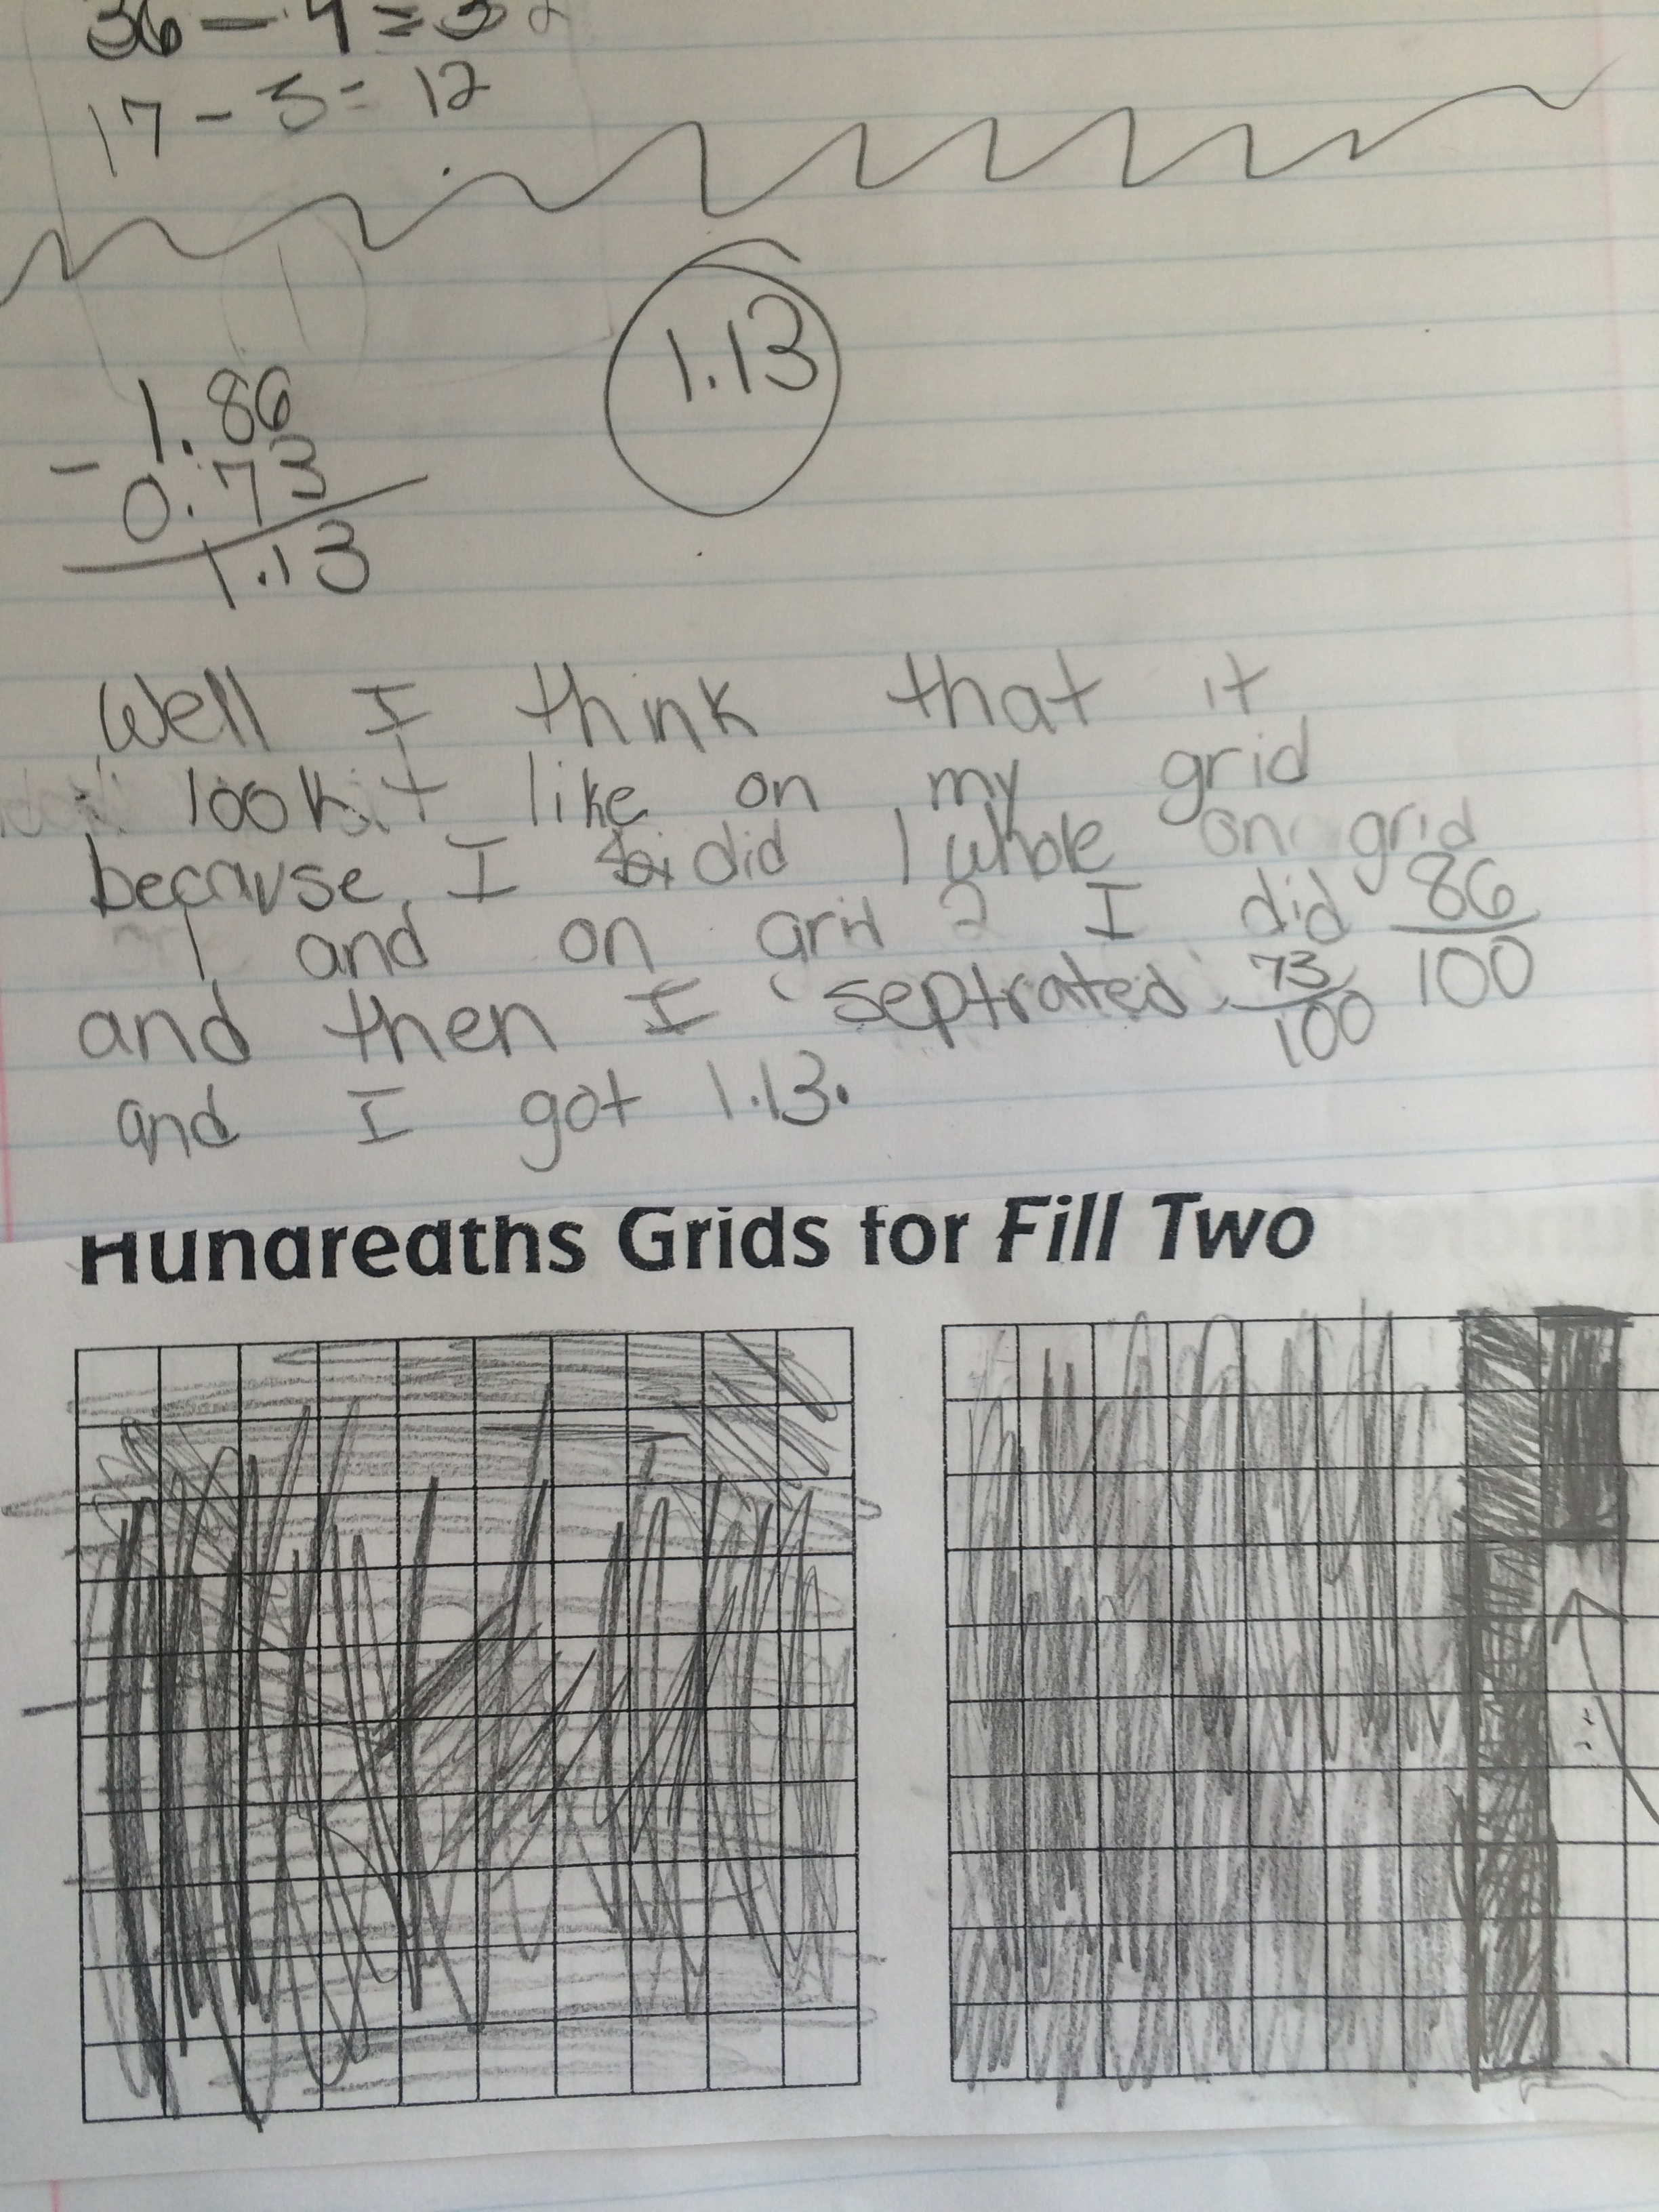 36 - 4 = 32
17 - 5 = 12
1
1.86
- 0.73
1.13
1.13
Well I think that it
look like on my grid
because I did 1 whole on grid
1 and on grid 2 I did 86/100
and then I septrated 73/100
and I got 1.13.
Hundredths Grids for Fill Two